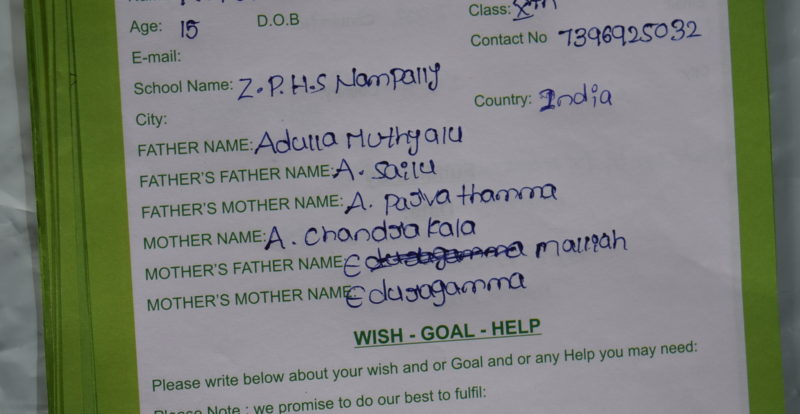 Age: 15 D.O.B Class: Xth
E-mail: Contact No 7396925032
School Name: Z.P.H.S Nampally
City: Country: India
FATHER NAME: Adulla Muthyalu
FATHER'S FATHER NAME: A. Sailu
FATHER'S MOTHER NAME: A. Parvathamma
MOTHER NAME: A. Chandrakala
MOTHER'S FATHER NAME E malliah
MOTHER'S MOTHER NAME Eduragamma
WISH - GOAL - HELP
Please write below about your wish and or Goal and or any Help you may need:
Please Note : we promise to do our best to fulfil: